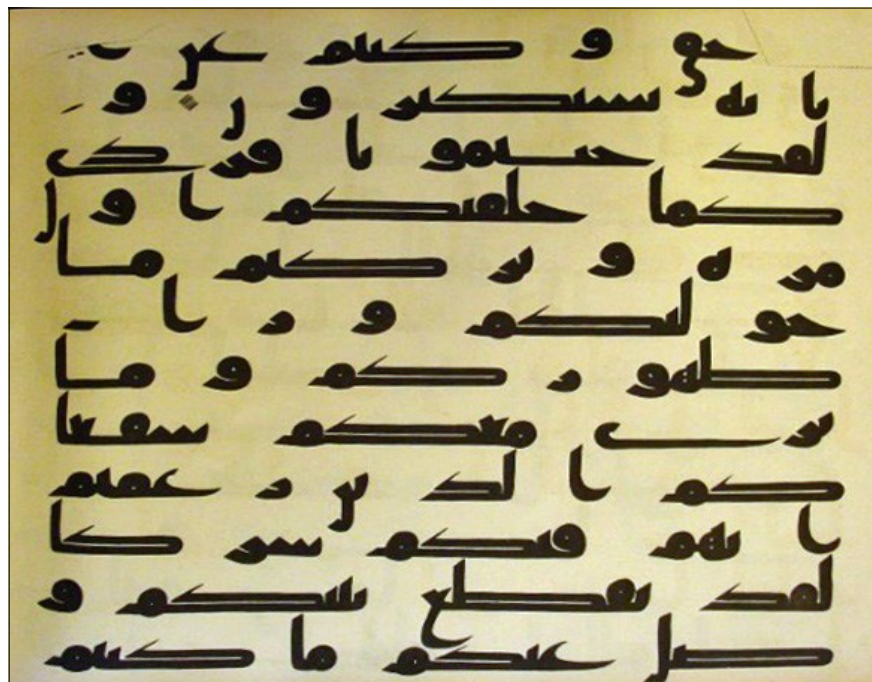 حق و كنتم عن
ا يته تستكبرون و
لقد جئتمونا فردى
كما خلقنكم ا و ل
مرة و تر كتم ما
خو لنكم و ر ا
ظهو ر كم و ما
نرى معكم شفعا
كم ا لذ ين ز عمتم
ا نهم فيكم شركا
لقد تقطع بينكم و
ضل عنكم ما كنتم